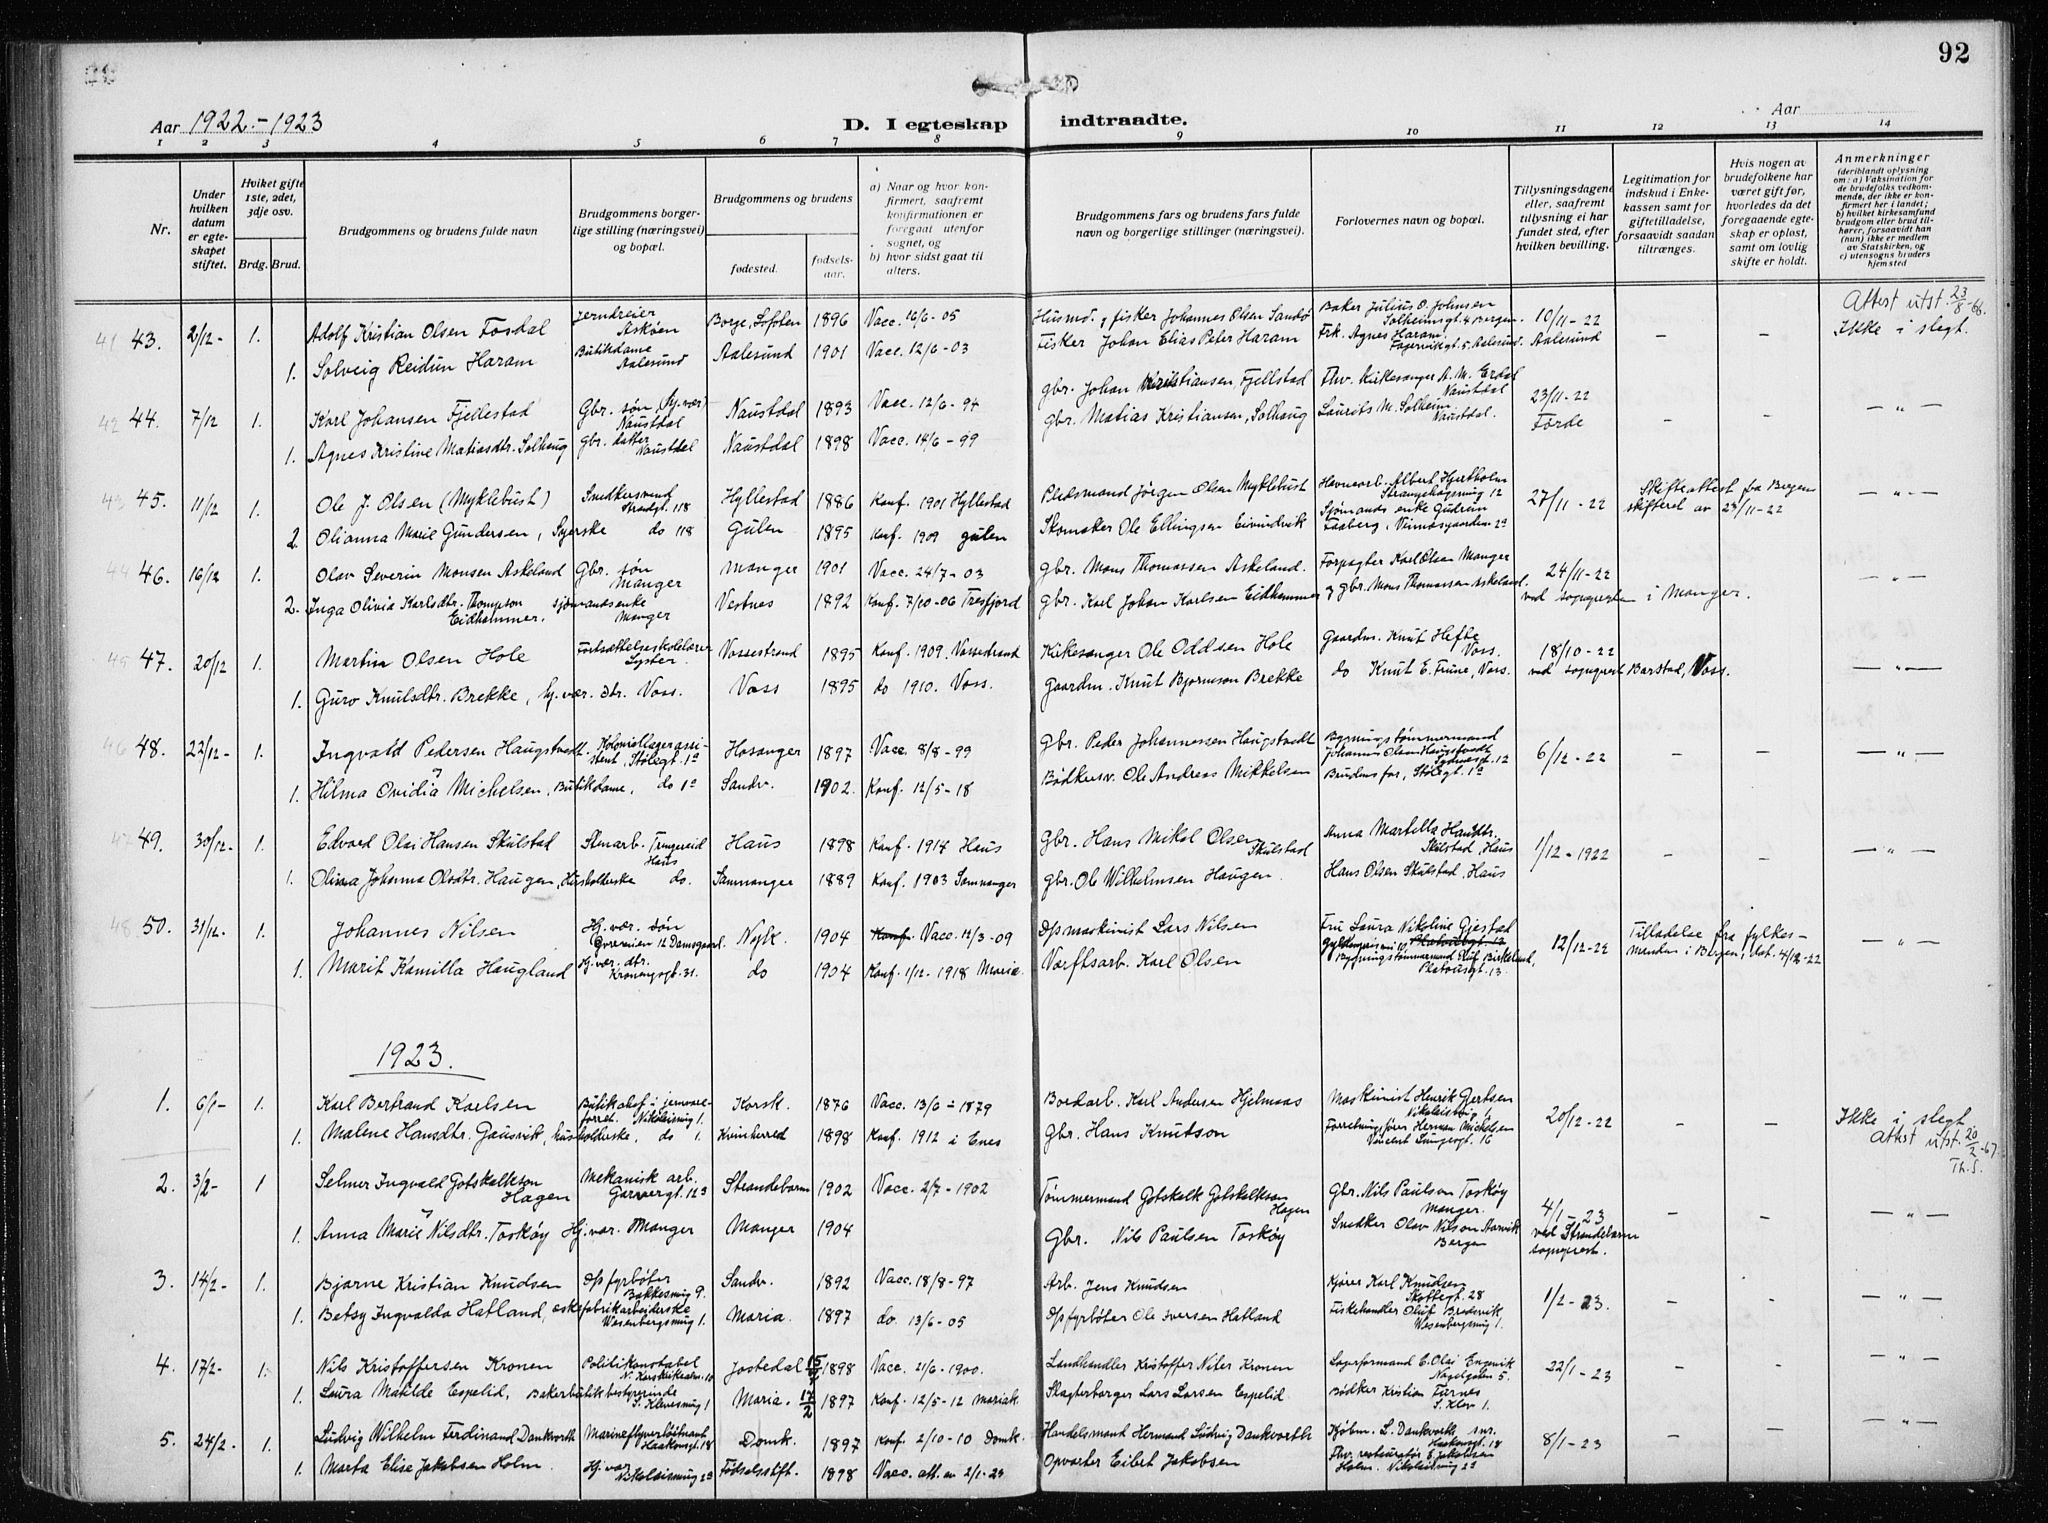 92
Aar 1922.-1923
D. I egteskap indtraadte.
Aar
1 2 3 4 5 6 7 8 9 10 11 12 13 14
Nr.
Under hvilken datum er egteskapet stiftet.
Hvilket gifte 1ste, 2det, 3dje osv.
Brdg. Brud.
Brudgommens og brudens fulde navn
Brudgommens borgerlige stilling (næringsvei) og bopæl.
Brudgommens og brudens
fødested.
fødselsaar.
a) Naar og hvor konfirmert, saafremt konfirmationen er foregaat utenfor sognet, og
b) hvor sidst gaat til alters.
Brudgommens fars og brudens fars fulde navn og borgerlige stillinger (næringsvei).
Forlovernes navn og bopæl.
Tillysningsdagene eller, saafremt tillysning ei har fundet sted, efter hvilken bevilling.
Legitimation for indskud i Enkekassen samt for giftetilladelse, forsaavidt saadan tiltrænges.
Hvis nogen av brudefolkene har været gift før, hvorledes da det foregaaende egteskap er opløst, samt om lovlig skifte er holdt.
Anmerkninger (deriblandt oplysning om: a) Vaksination for de brudefolks vedkommende, der ikke er konfirmert her i landet; b) hvilket kirkesamfund brudgom eller brud tilhører, forsaavidt han (hun) ikke er medlem av Statskirken, og c) utensogns bruders hjemsted
Attest utst. 23/8-66.
41 43. 2/12- 1. Adolf Kristian Olsen Fosdal Jerndreier Askøen Borge, Lofoten 1896 Vacc. 16/6-05 Husmd. & fisker Johannes Olsen Sandø Baker Julius O. Johnsen Solheimsgt. 4 Bergen. 10/11-22 - - Ikke i slegt.
1. Solveig Reidun Haram Butikdame Aalesund Aalesund 1901 Vacc. 12/6-03 Fisker Johan Elias Peter Haram Frk. Agnes Haram Fagervikgt. 5 Aalesund. Aalesund
42 44. 7/12 1. Karl Johansen Fjellestad Gbr. søn, (hj.vær) Naustdal Naustdal 1893 Vacc. 12/6-94 gbr. Johan Kristiansen, Fjellstad Fhv. Kirkesanger A. M. Erdal Naustdal 23/11-22 - - -"-
1. Agnes Kristine Matiasdtr. Solhaug gbr. datter Naustdal Naustdal 1898 Vacc. 14/6-99 gbr. Matias Kristiansen, Solhaug Laurits M. Solheim Naustdal. Førde
43 45. 11/12 1. Ole J. Olsen (Myklebust) Snedkersvend Strandgt. 118 Hyllestad 1886 Konf. 1901 Hyllestad Pladsmand Jørgen Olsen Myklebust Havnearb. Albert Hjertholm Strangehagsmug 12 27/11-22 Skifteattest fra Bergen skifteret av 23/11-22 -"-
2. Olianna Marie Gundersen, Syerske do 118 Gulen 1895 Konf. 1909 gulen Skomaker Ole Ellingsen Eivindvik Sjømands enke Gudrun Faaberg,
44 46. 16/12 1. Olav Severin Monsen Askeland Gbr. søn Manger Manger 1901 Vacc. 24/7-03 gbr. Mons Thomassen Askeland. Forpagter Karl Olsen Manger 24/11-22 -"-
2. Inga Olivia Karlsdtr. Thompson Eidhammer, sjømandsenke Manger Vestnes 1892 Konf. 7/10-06 Tresfjord gbr. Karl Johan Karlsen Eidhammer & gbr. Mons Thomassen Askeland. ved sognepresten i Manger.
45 47. 20/12 1. Martin Olsen Hole Fortsættelsesskolelærer Lyster. Vossestrand 1895 Konf. 1909. Vossestrand Kirkesanger Ole Oddsen Hole Gaardm. Knut Hefte Voss. 18/10-22 -"-
1. Guro Knutsdtr. Brekke, hj.vær. dtr. Voss. Voss 1895 do 1910. Voss. Gaardm. Knut Bjørnson Brekke do Knut E. Frune, Voss. ved sogneprest Barstad, Voss.
46 48. 22/12- 1. Ingvald Pedersen Haugstvedt. Koloniallagerassistent, Stølegt. 1a Hosanger 1897 Vacc. 8/8-99 Gbr. Peder Johannessen Haugstvedt Bygningstømmermand Johannes Olsen Haugstvedt 12 6/12-22 - - -"-
1. Hilma Ovidia Michelsen, Butikdame, do 1a Sandv. 1902. Konf. 12/5-18 Bødkersv. Ole Andreas Mikkelsen Brudens far, Stølegt. 1a
47 49. 30/12- 1. Edvard Olai Hansen Skulstad Stenarb. Trengereid Haus Haus 1898 Konf. 1914 Haus Gbr. Hans Mikal Olsen Skulstad Anna Martella Hansdtr. Skulstad, Haus 1/12-1922 - - -"-
1. Olina Johanna Olsdtr. Haugen, Husholderske do. Samnanger 1889 Konf. 1903 Samnanger gbr. Ole Wilhelmsen Haugen. Hans Olsen Skulstad, Haus
48 50. 31/12- 1. Johannes Nilsen Hj.vær. søn 12 Damsgaard. Nyk. 1904 Konf. Vacc. 12/3-09 Dpsmaskinist Lars Nilsen Fru Laura Nikoline Gjestad 12/12-22 Tilladelse fra fylkesmanden i Bergen, dat. 4/12-22 -"-
1. Marit Kamilla Haugland Hj.vær. dtr. 31. do 1904 Konf. 1/12-1918 Maria Værftsarb. Karl Olsen Bygningstømmermand Birkeland, Platousgt. 13.
1923.
1. 6/1- 1. Karl Bertrand Karlsen Butikchef i jernvareforret. Nikolaismug 1. Korsk. 1876 Vacc. 13/6-1879 Bordarb. Karl Andersen Hjelmaas Maskinist Henrik Gjertsen Nikolaismug 1 20/12-22 - - Ikke i slegt
1. Malene Hansdtr. Gausvik, husholderske, do 1. Kvinherred 1898 Konf. 1912 i Enes Gbr. Hans Knutson Forretningsfører Herman Michelsen Vincent Lungesgt. 16 Attest utst. 20/2-67. Th.S.
2. 3/2- 1 Selmer Ingvald Gotskalkson Hagen Mekanisk arb. 123 Strandebarm 1902 Vacc. 2/7-1902 Tømmermand Gotskalk Gotskalkson Hagen Gbr. Nils Paulsen Toskøy Manger. 4/1-23 - - -"-
1. Anna Marie Nilsdtr. Toskøy Hj.vær. Manger Manger 1904 Gbr. Nils Paulsen Toskøy Snedker Olav Nilson Bergen ved Strandebarm sogneprest.
3. 14/2- 1. Bjarne Kristian Knudsen Dpsfyrbøter Bakkesmug 9. Sandv. 1892 Vacc. 18/8-97 Arb. Jens Knudsen Kjører Karl Knudsen Skottegt. 28 1/2-23. - - -"-
1. Betsy Ingvalda Hatland, eskefabrikarbeiderske Wesenbergsmug 1. Maria. 1897 do. 13/6-05 Dpsfyrbøter Ole Iversen Hatland Fiskehandler Oluf Bredsvik Wesenbergsmug 1.
4. 17/2- 1. Nils Kristoffersen Kronen Politikonstabel Jostedal 15/ 1898 Vacc. 21/6-1900. Landhandler Kristoffer Nilsen Kronen Lagerformand E. Olai Engevik Nagelgaten 5. 22/1-23 - - -"-
1. Laura Matilde Espelid, Bakerbutikbestyrerinde S. Klevesmug 1 Maria. 17/2 1897 Konf. 12/5-12 Mariak. Slagterborger Lars Larsen Espelid Bødker Kristian Furnes S. Klev 1.
5. 24/2- 1. Ludvig Wilhelm Ferdinand Dankwerth Marineflyverløitnant Haakonsgt. 18 Domk. 1897 Konf. 2/10-10 Domk. Handelsmand Hermand Ludvig Dankwerth Kjøbm. L. Dankwerth snr. Haakonsgt. 18 8/1-23 - - -"-
1. Marta Elise Jakobsen Holm. Hj.vær Nikolaismug 2a Fødselsstift. 1898 Vacc. att. av 2/1-23 Opvarter Eibert Jakobsen Fhv. restauratør E. Jakobsen Holm. Nikolaismug 2a